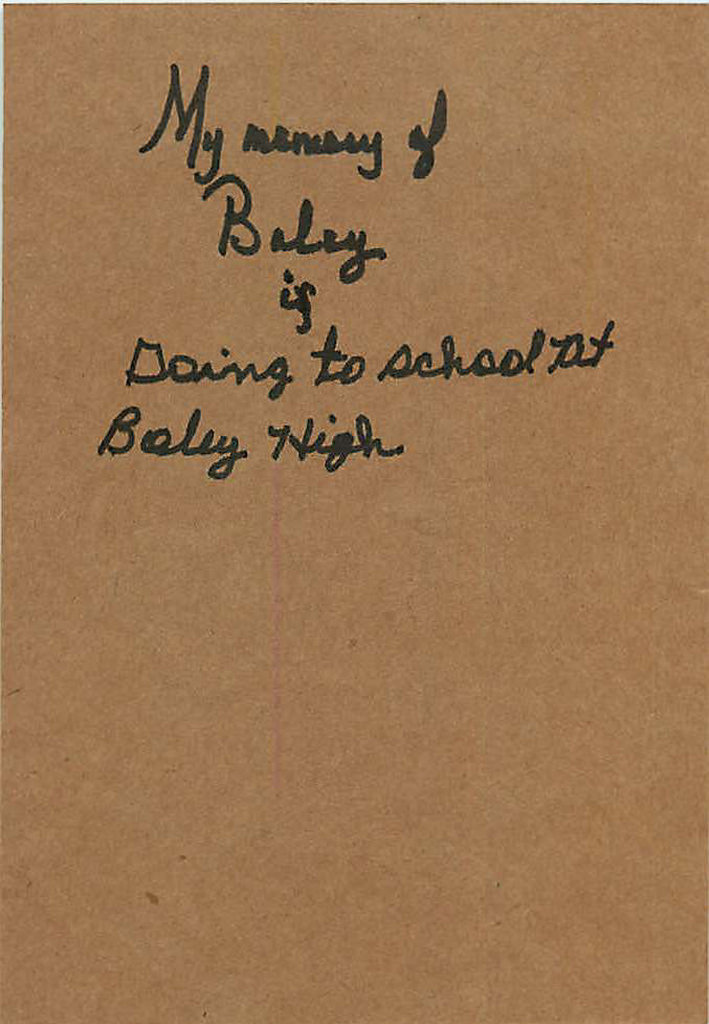 My memory of
Boley
is
Going to school At
Boley High.